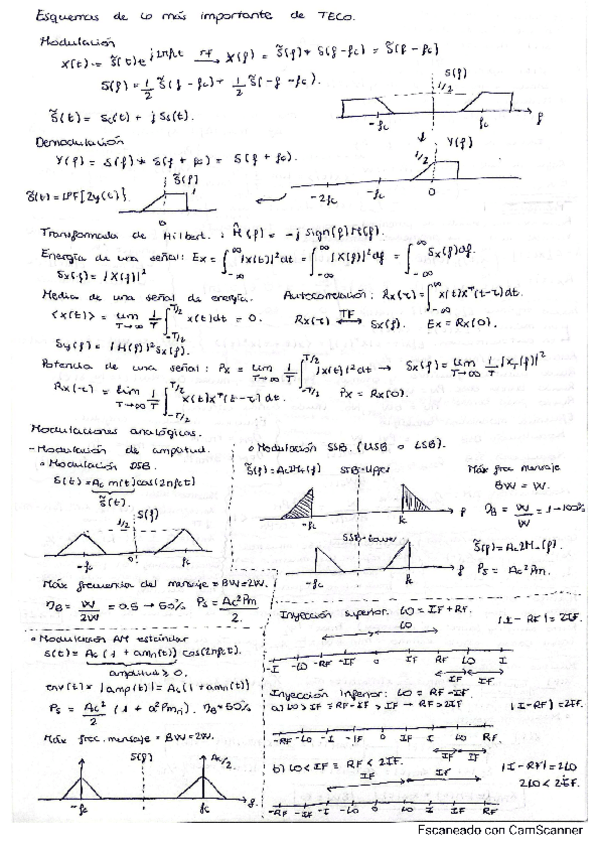 Esquemas de lo más importante de TECO.
Modulación
x(t) = s̃(t)e^{j2πfct} TF→ X(f) = S̃(f) * δ(f-fc) = S̃(f-fc)
S(f) = 1/2 S̃(f-fc) + 1/2 S̃(-f-fc).
S(f)
1/2
s̃(t) = sc(t) + j ss(t).
-fc
fc
f
Demodulación
Y(f)
1/2
Y(f) = S(f) * δ(f+fc) = S(f+fc).
S̃(f)
s̃(t) = LPF[2y(t)].
1
0
-2fc
-fc
0
Transformada de Hilbert: Ĥ(f) = -j sign(f)M(f).
Energía de una señal: Ex = ∫_{-∞}^{∞} |x(t)|² dt = ∫_{-∞}^{∞} |X(f)|² df = ∫_{-∞}^{∞} Sx(f)df.
Sx(f) = |X(f)|²
Media de una señal de energía. Autocorrelación: Rx(τ) = ∫_{-∞}^{∞} x(t)x*(t-τ)dt.
<x(t)> = lim_{T→∞} 1/T ∫_{-T/2}^{T/2} x(t)dt = 0. Rx(τ) TF↔ Sx(f). Ex = Rx(0).
Sy(f) = |H(f)|² Sx(f).
Potencia de una señal: Px = lim_{T→∞} 1/T ∫_{-T/2}^{T/2} |x(t)|² dt → Sx(f) = lim_{T→∞} 1/T |X_T(f)|²
Rx(τ) = lim_{T→∞} 1/T ∫_{-T/2}^{T/2} x(t)x*(t-τ)dt. Px = Rx(0).
Modulaciones analógicas.
- Modulación de amplitud.
o Modulación DSB.
s(t) = Ac m(t) cos(2πfct)
s̃(t).
S(f)
1/2
-fc
0
fc
Máx frecuencia del mensaje = BW = 2W.
ηB = W/2W = 0.5 → 50% Ps = Ac²Pm/2.
o Modulación SSB. (USB o LSB).
S̃(f) = Ac2M+(f)
SSB-Upper
Máx frec mensaje
BW = W.
ηB = W/W = 1 → 100%
-fc
fc
f
SSB-Lower
S̃(f) = Ac2M-(f).
Ps = Ac²Pm.
-fc
fc
f
o Modulación AM estándar
s(t) = Ac(1 + amn(t)) cos(2πfct).
amplitud ≥ 0.
env(t) = |amp(t)| = Ac(1 + amn(t))
Ps = Ac²/2 (1 + a²Pmn). ηB = 50%
Máx frec. mensaje = BW = 2W.
S(f)
Ac/2
-fc
fc
f
Inyección superior. LO = IF + RF.
LO
|I - RF| = 2IF.
-I -LO -RF -IF 0 IF RF LO I
IF IF
Inyección inferior: LO = RF - IF.
a) LO > IF ≡ RF - IF > IF → RF > 2IF
|I - RF| = 2IF
-RF -LO -I -IF 0 IF I LO RF
IF IF
b) LO < IF ≡ RF < 2IF.
IF IF
|I - RF| = 2LO
2LO < 2IF.
-RF -IF -I -LO 0 LO I IF RF
Escaneado con CamScanner